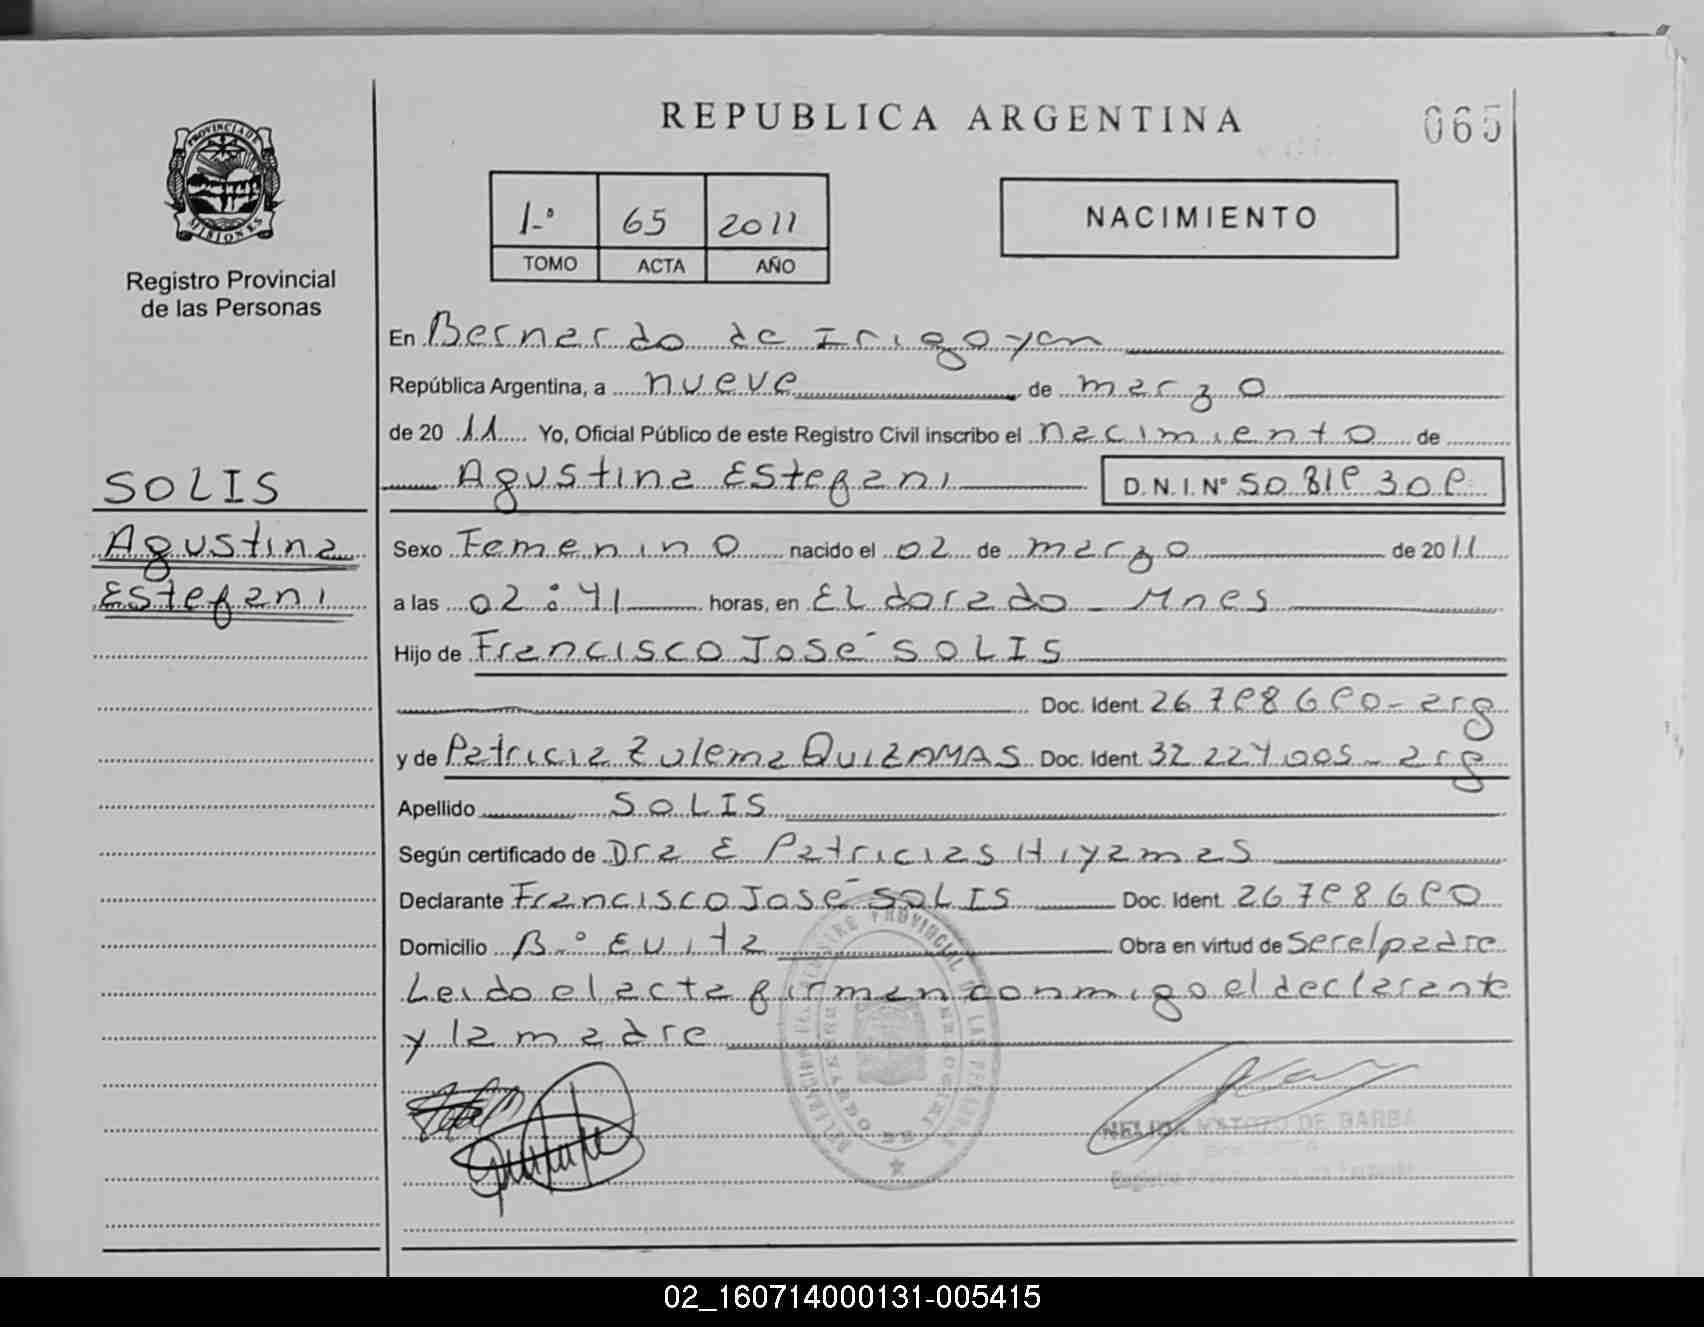 REPUBLICA ARGENTINA
065
PROVINCIA DE
MISIONES
Registro Provincial
de las Personas
1.º 65 2011
TOMO ACTA AÑO
NACIMIENTO
En Bernardo de Irigoyen
República Argentina, a nueve de marzo
de 20 11 Yo, Oficial Público de este Registro Civil inscribo el nacimiento de
SOLIS
Agustina
Estefani
Agustina Estefani D.N.I. Nº 50 819 309
Sexo Femenino nacido el 02 de marzo de 2011
a las 02:41 horas, en Eldorado - Mnes
Hijo de Francisco José SOLIS
Doc. Ident. 26 798 690 - arg
y de Patricia Zulema QUIZAMAS Doc. Ident. 32 224 005 - arg
Apellido SOLIS
Según certificado de Dra E Patricias Hiyamas
Declarante Francisco José SOLIS Doc. Ident. 26 798 690
Domicilio B.º Evita Obra en virtud de ser el padre
Leido el acta firman conmigo el declarante
y la madre
PROVINCIAL DE LAS
DE GARBA
02_160714000131-005415